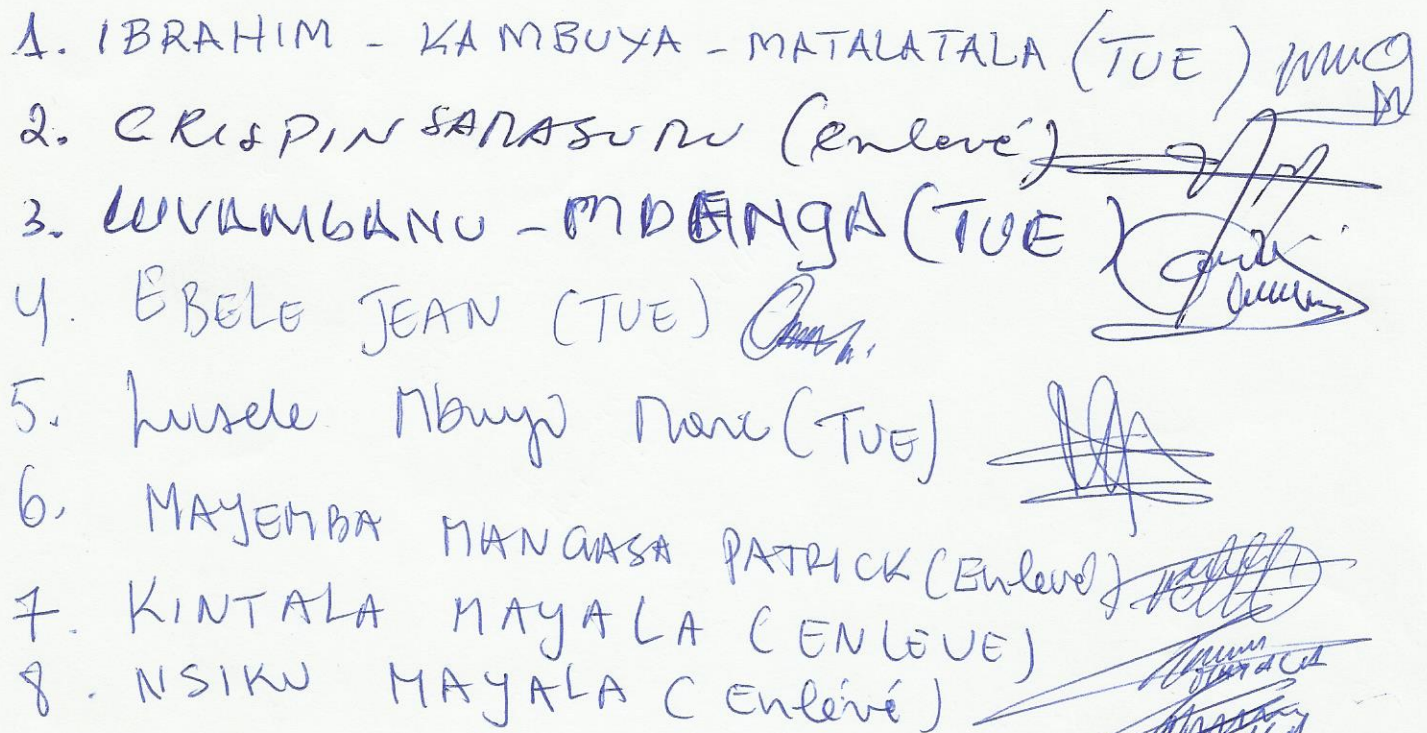 1. IBRAHIM - KAMBUYA - MATALATALA (TUE)
2. CRISPIN SARASURU (enlevé)
3. LUVAMBANU - MDENGA (TUE)
4. EBELE JEAN (TUE)
5. Lusele Mbuyi Marc (TUE)
6. MAYEMBA MANGASA PATRICK (Enlevé)
7. KINTALA MAYALA (ENLEVE)
8. NSIKU MAYALA (Enlévé)